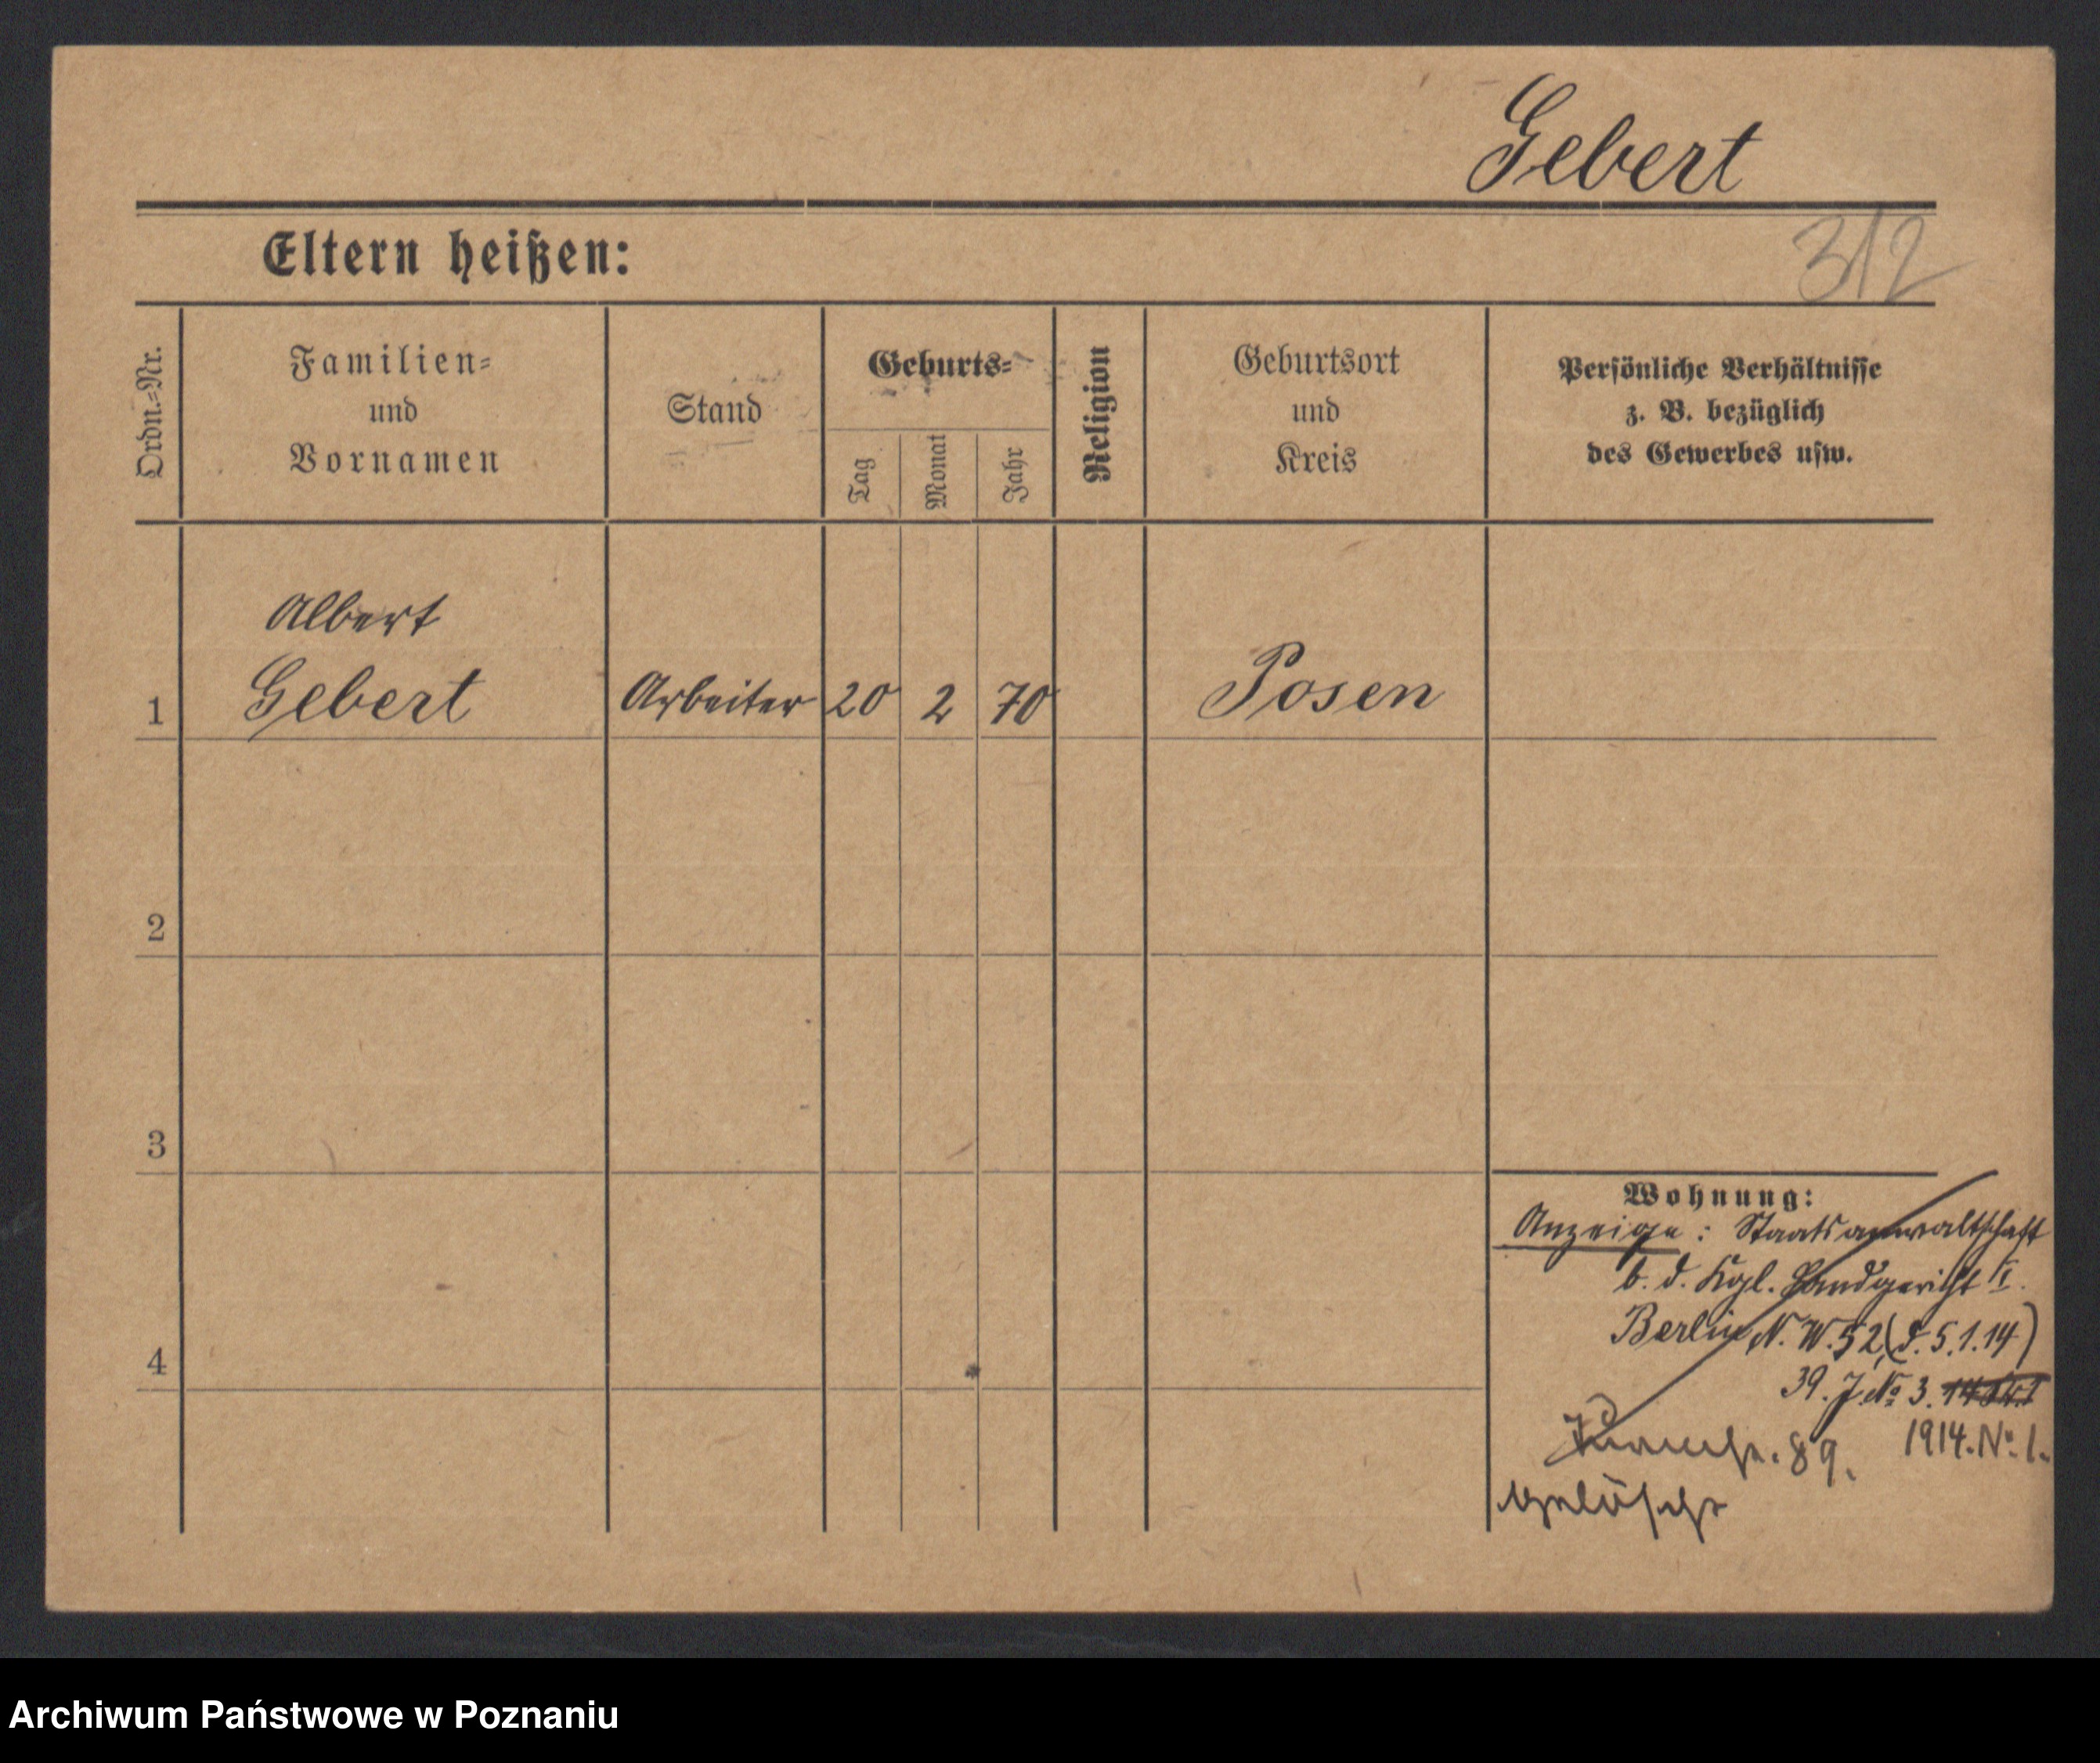 Gebert
312
Eltern heißen:
Ordn.-Nr.
Familien-
und
Vornamen
Stand
Geburts-
Tag
Monat
Jahr
Religion
Geburtsort
und
Kreis
Persönliche Verhältnisse
z. B. bezüglich
des Gewerbes usw.
Albert
1 Gebert Arbeiter 20 2 70 Posen
2
3
4
Wohnung:
Anzeige: Staatsanwaltschaft
b. d. Kgl. Landgericht I.
Berlin N. W. 52 (d. 5.1.14)
39. J. No 3.
1914. No. 1.
89.
gelöscht
Archiwum Państwowe w Poznaniu